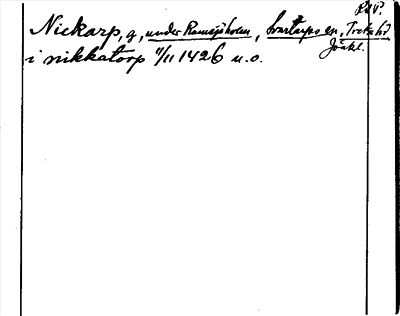 RäP.
Nickarp, g, under Ramsjöholm, Svartarps en, Tveta hd
Jönkl.
i nikkatorp 11/11 1426 u.o.